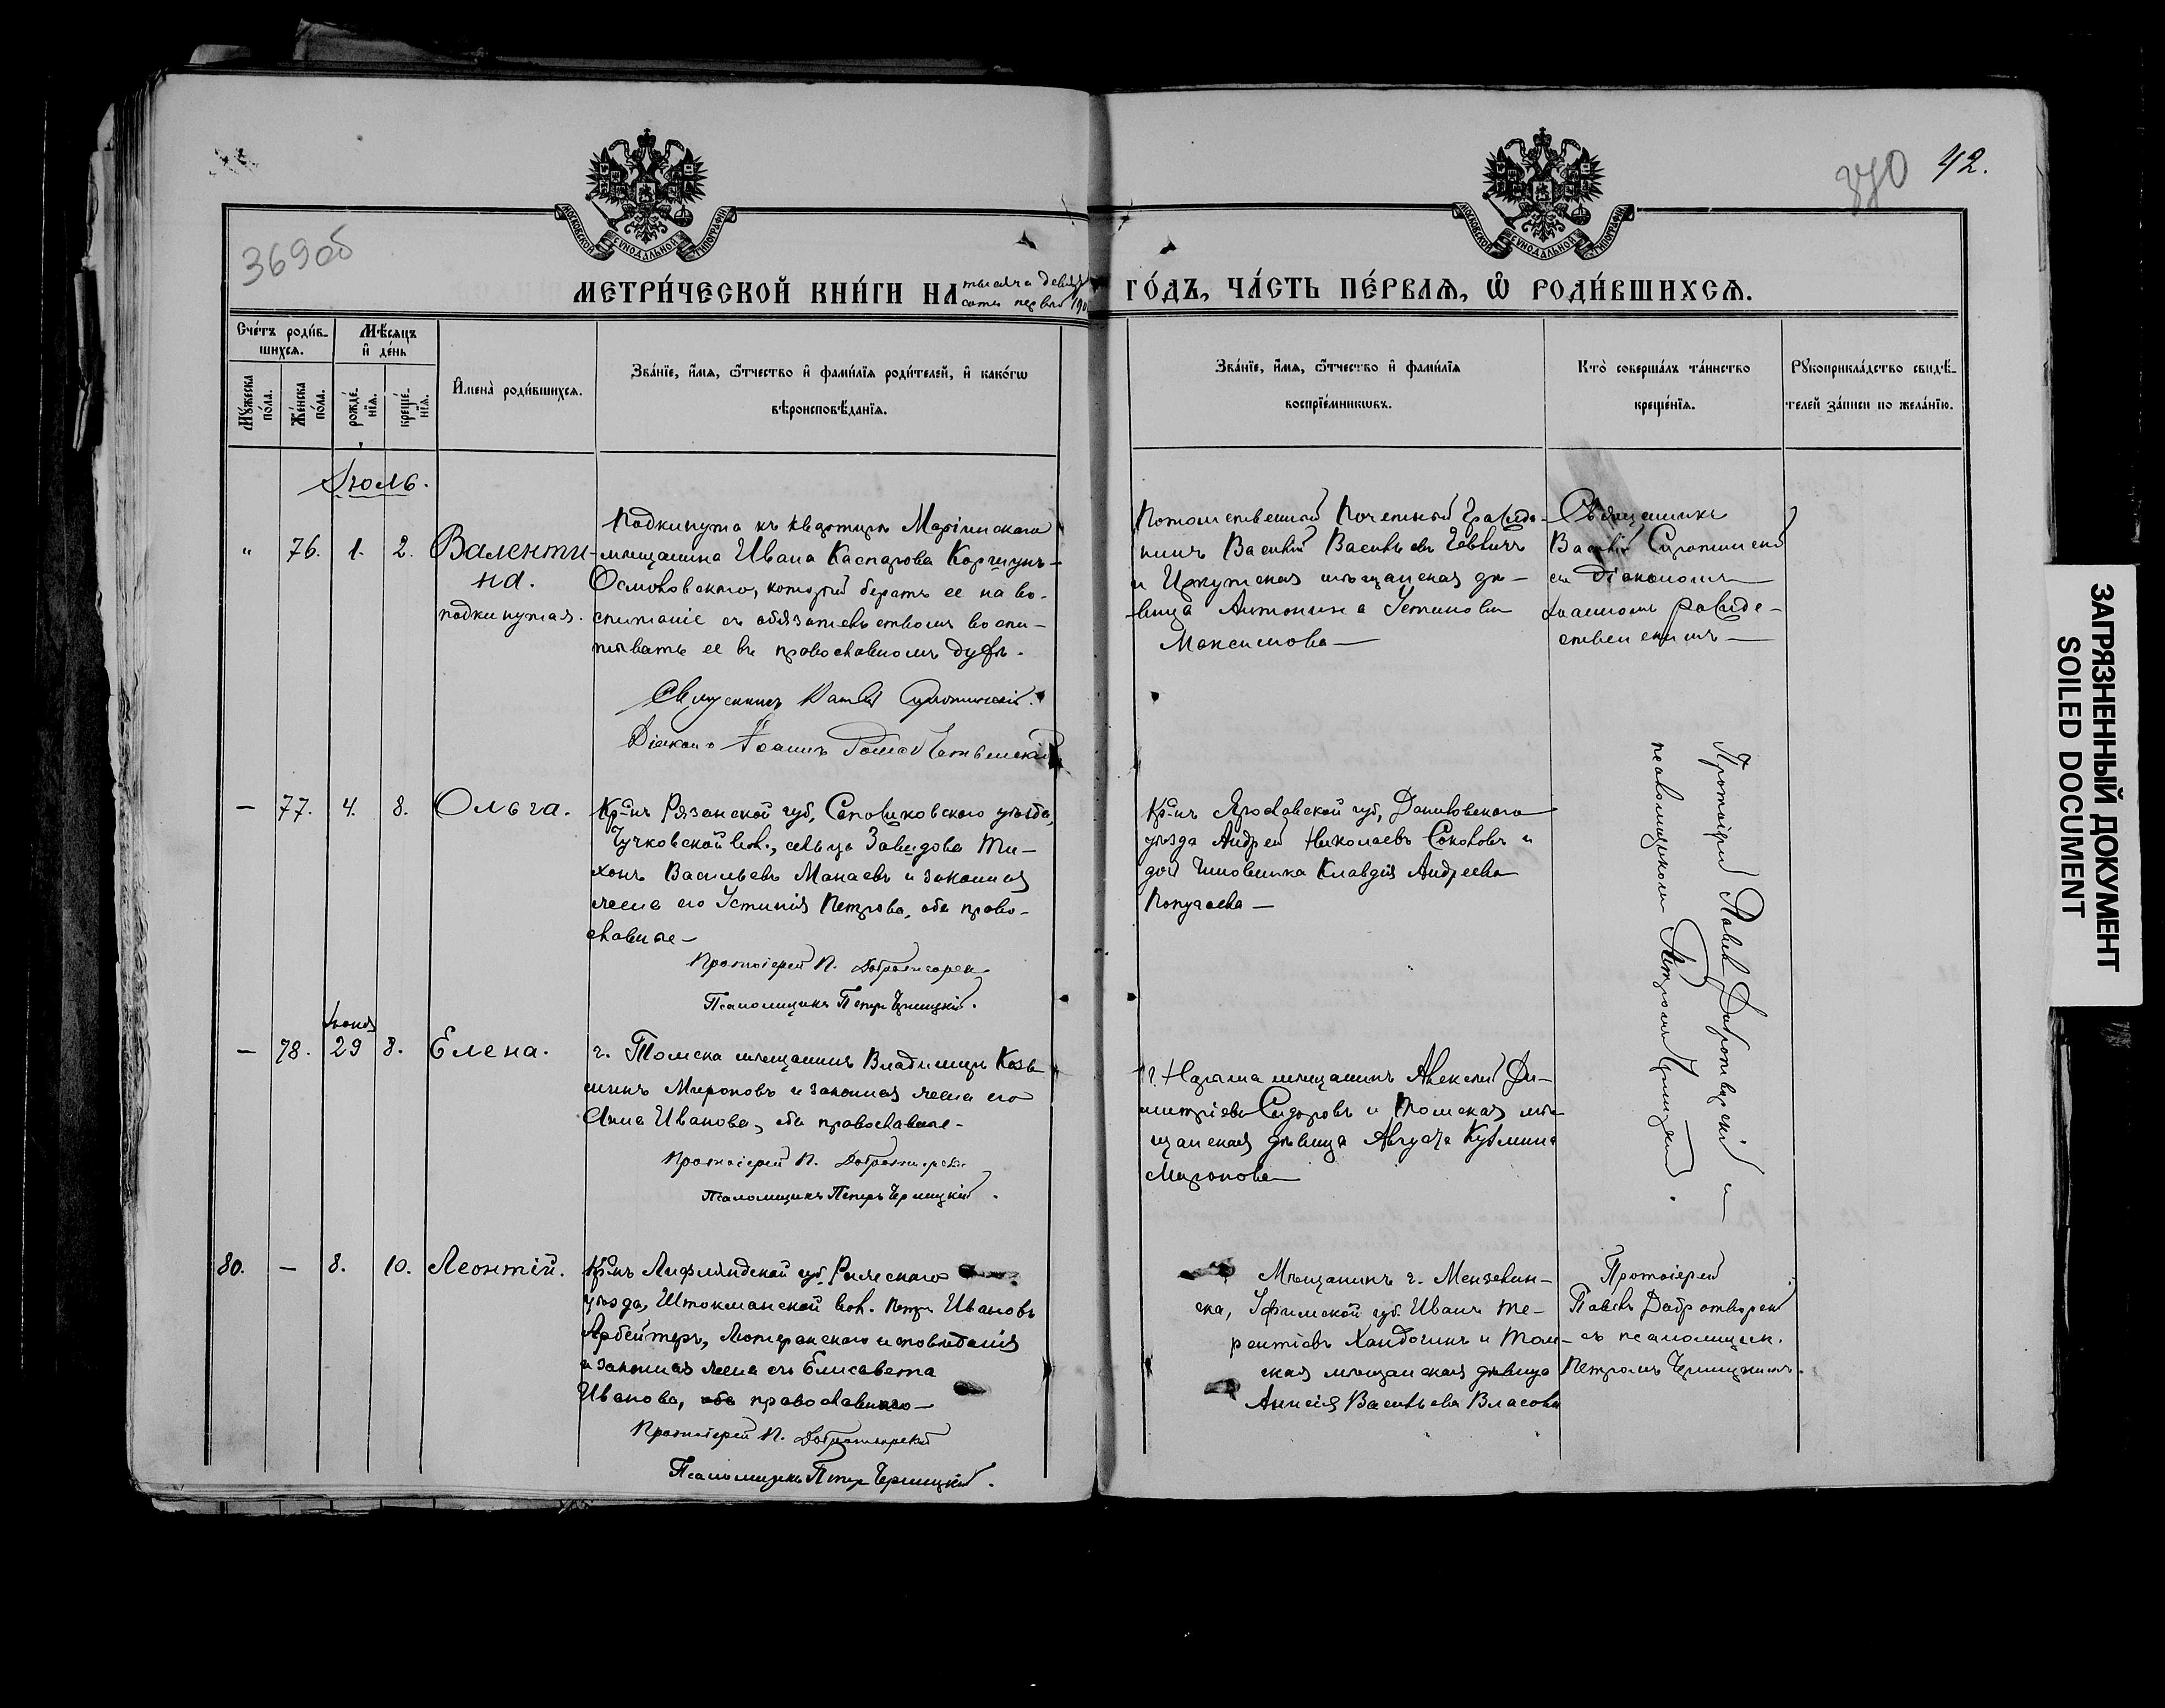 369об
370 42.
МОСКОВСКОЙ СѴНОДАЛЬНОЙ ТИПОГРАФІИ
МОСКОВСКОЙ СѴНОДАЛЬНОЙ ТИПОГРАФІИ
МЕТРИ́ЧЕСКОЙ КНИ́ГИ НА тысяча девять
сотъ первый 190
ГО́ДЪ, ЧА́СТЬ ПЕ́РВАѦ, Ѿ РОДИ́ВШИХСѦ.
Сче́тъ роди́в-
шихсѧ.
Мѣ́сяцъ
и҆ де́нь
Му́жеска
по́ла.
Же́нска
по́ла.
рожде́-
нїѧ.
креще́-
нїѧ.
И҆мена̀ роди́вшихсѧ.
Зва́нїе, и҆́мѧ, ѻ҆́тчество и҆ фами́лїѧ роди́телей, и҆ како́гѡ
вѣроисповѣ́данїѧ.
Зва́нїе, и҆́мѧ, ѻ҆́тчество и҆ фами́лїѧ
воспрїе́мникѡвъ.
Кто̀ соверша́лъ та́инство
креще́нїѧ.
Рꙋкоприкла́дство свидѣ́-
телей за́писи по жела́нїю.
Іюль.
" 76. 1. 2. Валенти-
на.
подкинутая.
Подкинута къ квартирѣ Маріинскаго
мѣщанина Ивана Каспарова Коршунъ-
Осмоловскаго, который беретъ ее на во-
спитаніе съ обязательствомъ воспи-
тывать ее въ православномъ духѣ.
Священникъ Василій Сиротинскій.
Діаконъ Іоаннъ Рождественскій
Потомственный Почетный Гражда-
нинъ Василій Васильевъ
и Иркутская мѣщанская дѣ-
вица Антонина Устинова
Максимова
Священникъ
Василій Сиротинскій
съ діакономъ
Іоанномъ Рожде-
ственскимъ
— 77. 4. 8. Ольга.
Кр-нъ Рязанской губ., Сапожковскаго уѣзда,
Чучковской вол., сельца Завидова Ти-
хонъ Васильевъ Манаевъ и законная
жена его Устинія Петрова, оба право-
славные
Протоіерей П. Добротворскій
Псаломщикъ Петръ Черницкій.
Кр-нъ Ярославской губ., Даниловскаго
уѣзда Андрей Николаевъ Соколовъ и
дочь Чиновника Клавдія Андреева
Попугаева
Протоіерей Павелъ Добротворскій и
псаломщикомъ Петромъ Черницкимъ.
Іюня
— 78. 29 8. Елена.
г. Томска мѣщанинъ Владимиръ Козь-
минъ Мироновъ и законная жена его
Анна Иванова, оба православные
Протоіерей П. Добротворскій
Псаломщикъ Петръ Черницкій.
г. Нарыма мѣщанинъ Алексѣй Ди-
митріевъ Сидоровъ и Томская мѣ-
щанская дѣвица Августа Кузьмина
Миронова
80. — 8. 10. Леонтій.
Кр-нъ Лифляндской губ. Рижскаго
уѣзда, Штокманской вол. Петръ Ивановъ
Арбейтеръ, лютеранскаго исповѣданія
и законная жена его Елисавета
Иванова, православнаго
Протоіерей П. Добротворскій
Псаломщикъ Петръ Черницкій.
Мѣщанинъ г. Мензелин-
ска, Уфимской губ. Иванъ Те-
рентіевъ Хандогинъ и Том-
ская мѣщанская дѣвица
Анисія Васильева Власова
Протоіерей
Павелъ Добротворскій
съ псаломщик.
Петромъ Черницкимъ.
ЗАГРЯЗНЕННЫЙ ДОКУМЕНТ
SOILED DOCUMENT